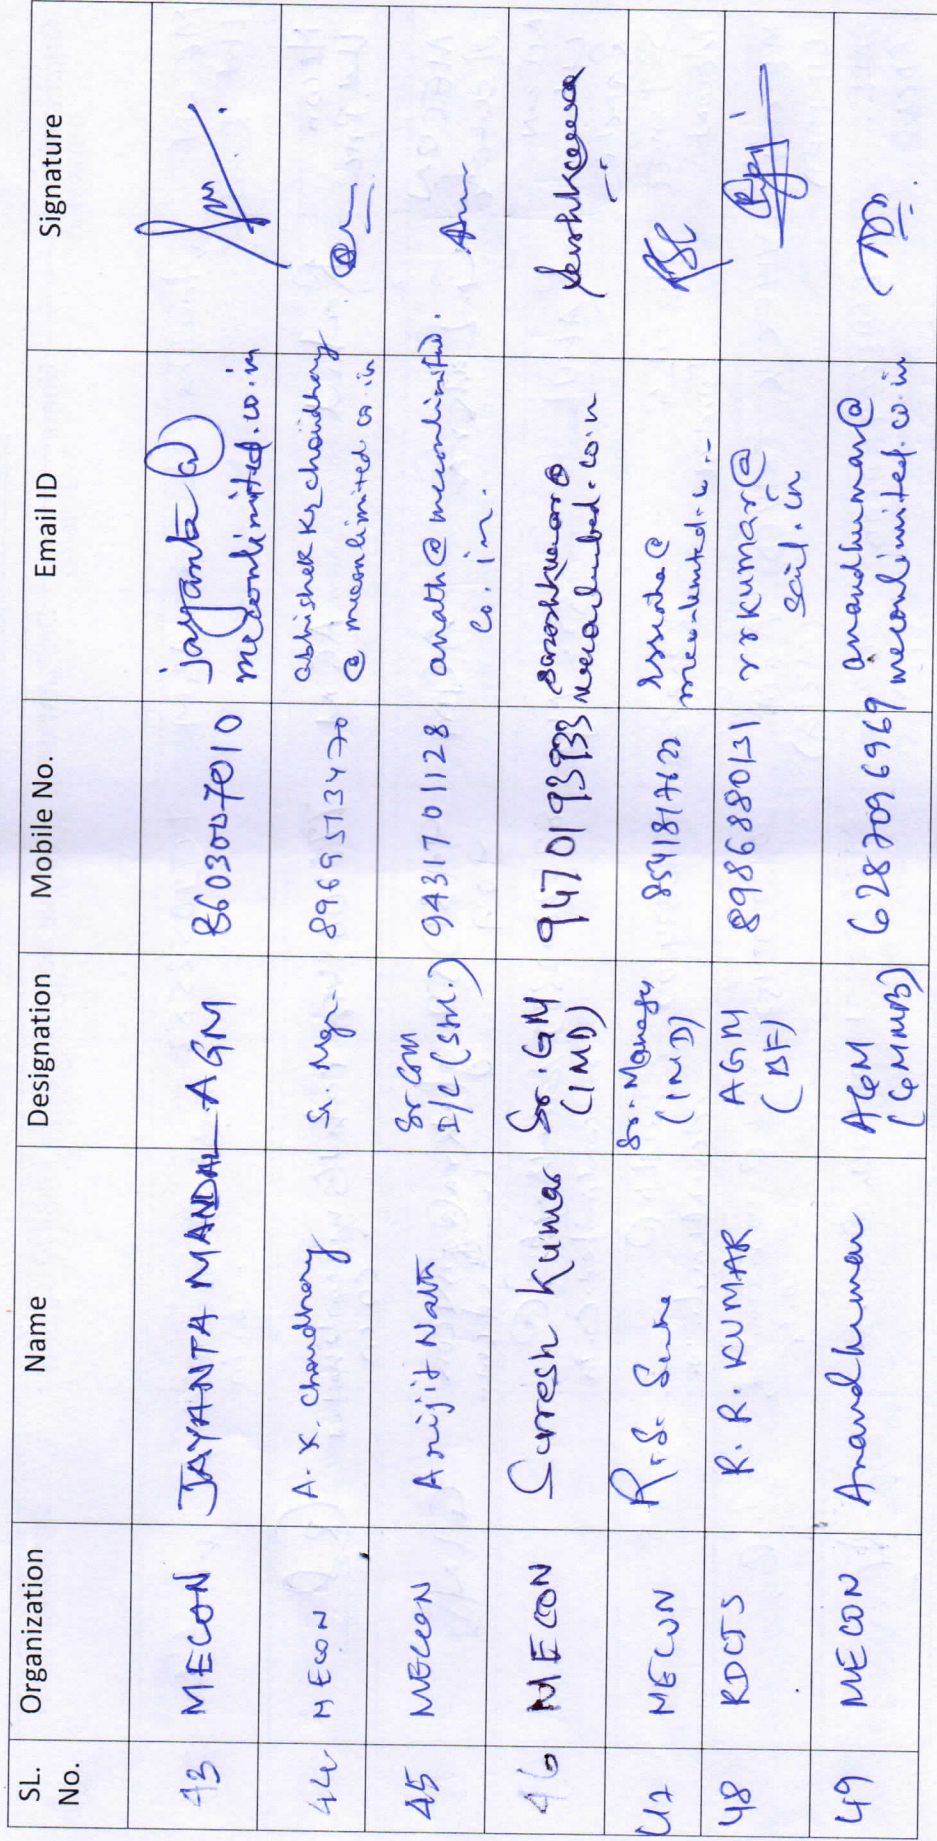 SL. No. Organization Name Designation Mobile No. Email ID Signature
43 MECON JAYANTA MANDAL AGM 8603007010 jayanta@
meconlimited.co.in
44 MECON A. K. Choudhary Sr. Mgr 8969513470 abhishek kr choudhary
@ meconlimited.co.in
45 MECON Arijit Nath Sr GM 9431701128 anath@meconlimited.
I/C (SM.) co.in.
46 MECON Suresh Kumar Sr. GM 9470193933
(IMD)
47 MECON R. S. Sr. Manager
(IMD)
48 RDCIS R. R. KUMAR AGM 8986880131 rrkumar@
(BF) sail.in
49 MECON Anandkumar AGM 6287096969 anandkumar@
meconlimited.co.in